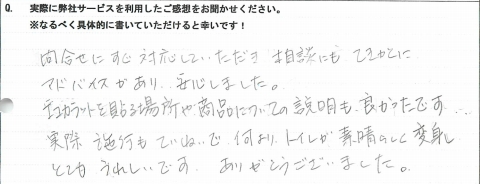 Q. 実際に弊社サービスを利用したご感想をお聞かせください。
※なるべく具体的に書いていただけると幸いです！
問合せにすぐ対応していただき 相談にもてきかくに
アドバイスがあり、安心しました。
エコカラットを貼る場所や商品についての説明も良かったです…。
実際 施行もていねいで 何より、トイレが素晴らしく変身し
とてもうれしいです。ありがとうございました。